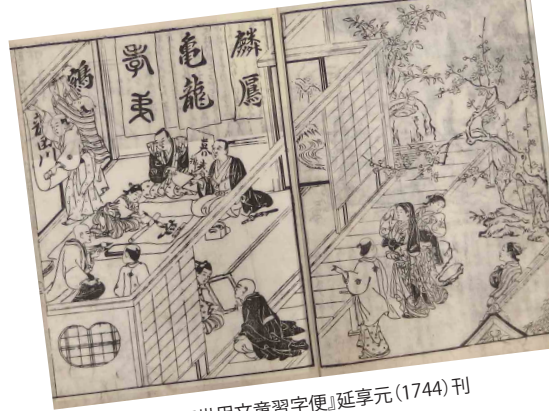 麟鳳
亀龍
鶴
龍田川
用文章習字便』延享元(1744)刊